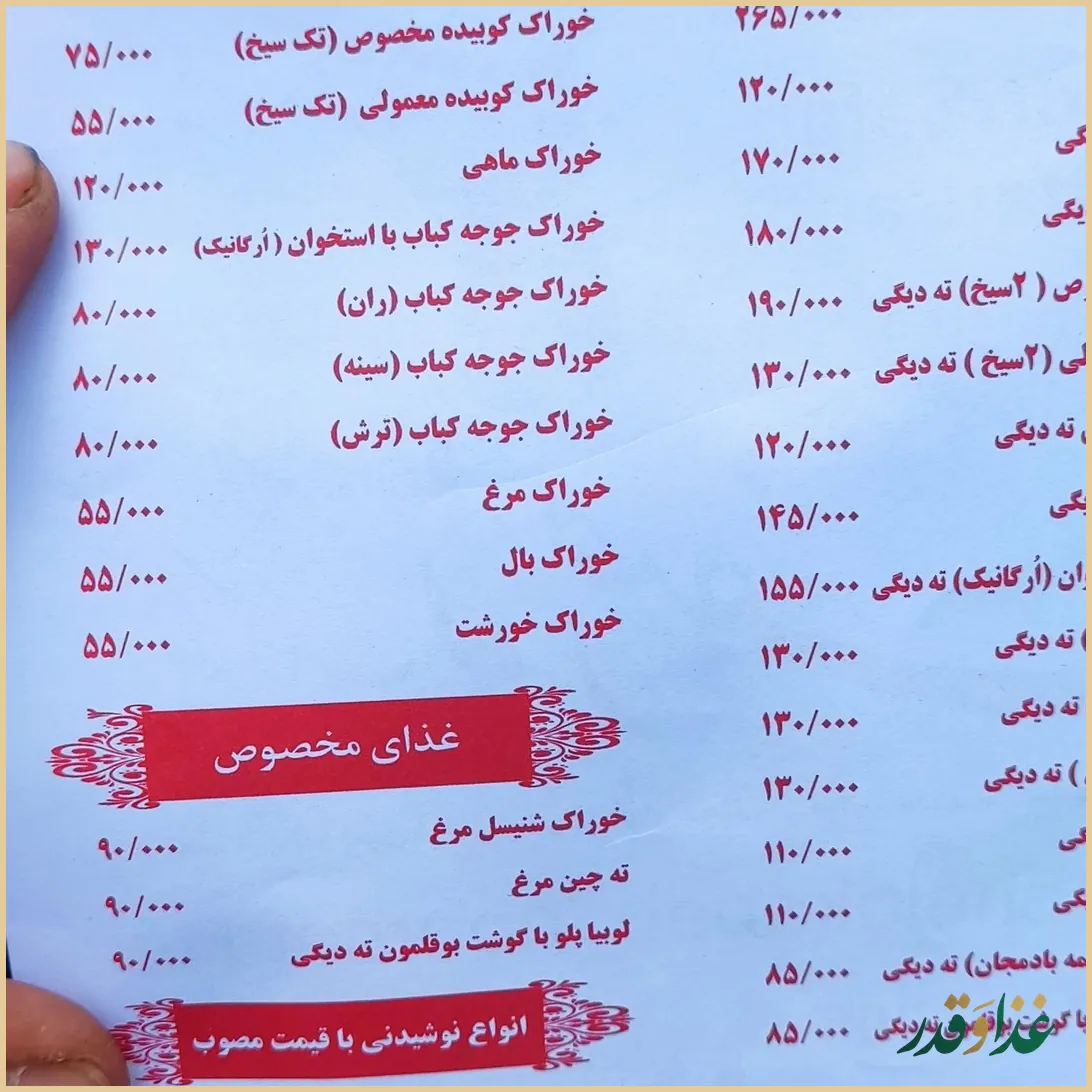 ۲۶۵/۰۰۰
۱۲۰/۰۰۰
۱۷۰/۰۰۰
۱۸۰/۰۰۰
(۲سیخ) ته دیگی ۱۹۰/۰۰۰
(۲سیخ) ته دیگی ۱۳۰/۰۰۰
ته دیگی ۱۲۰/۰۰۰
۱۴۵/۰۰۰
(اُرگانیک) ته دیگی ۱۵۵/۰۰۰
) ته دیگی ۱۳۰/۰۰۰
ته دیگی ۱۳۰/۰۰۰
) ته دیگی ۱۳۰/۰۰۰
۱۱۰/۰۰۰
۱۱۰/۰۰۰
بادمجان) ته دیگی ۸۵/۰۰۰
ته دیگی ۸۵/۰۰۰
خوراک کوبیده مخصوص (تک سیخ) ۷۵/۰۰۰
خوراک کوبیده معمولی (تک سیخ) ۵۵/۰۰۰
خوراک ماهی ۱۲۰/۰۰۰
خوراک جوجه کباب با استخوان (اُرگانیک) ۱۳۰/۰۰۰
خوراک جوجه کباب (ران) ۸۰/۰۰۰
خوراک جوجه کباب (سینه) ۸۰/۰۰۰
خوراک جوجه کباب (ترش) ۸۰/۰۰۰
خوراک مرغ ۵۵/۰۰۰
خوراک بال ۵۵/۰۰۰
خوراک خورشت ۵۵/۰۰۰
غذای مخصوص
خوراک شنیسل مرغ ۹۰/۰۰۰
ته چین مرغ ۹۰/۰۰۰
لوبیا پلو با گوشت بوقلمون ته دیگی ۹۰/۰۰۰
انواع نوشیدنی با قیمت مصوب
غذا و قدر